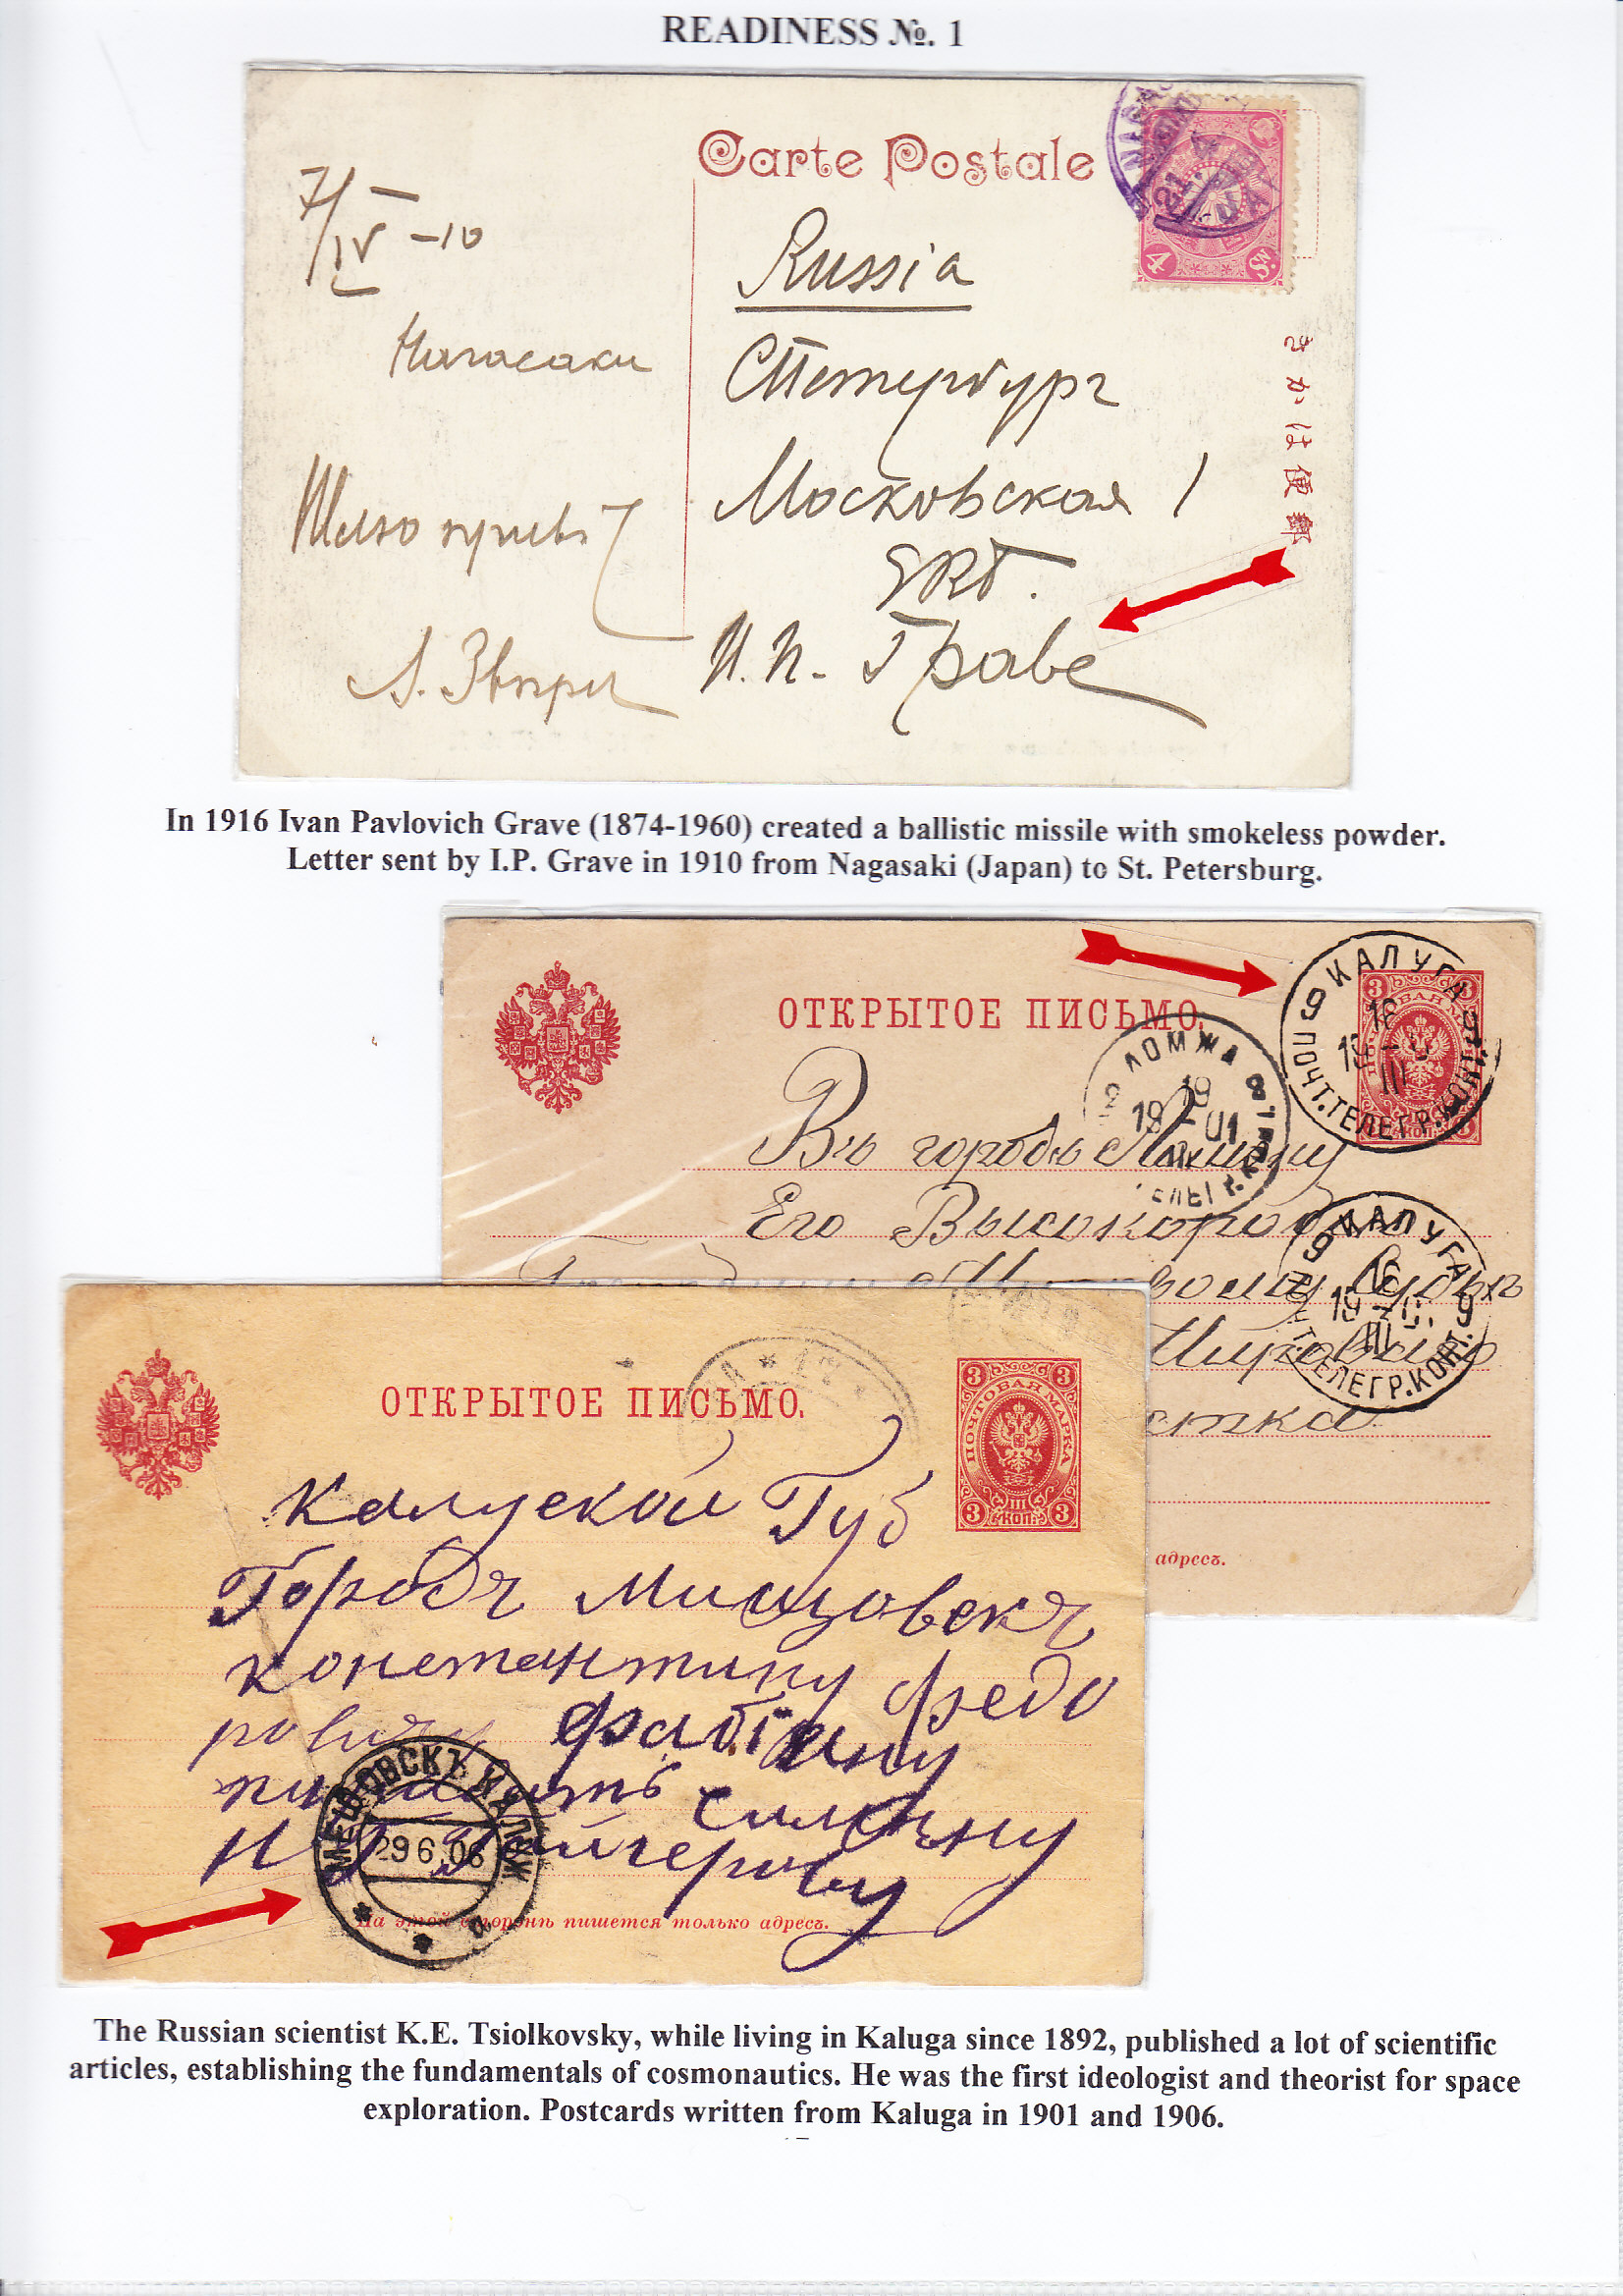 READINESS №. 1
Carte Postale
4 Sn.
7/IV -10
Нагасаки
Шлю привѣт
Russia
СПетербург
Московская 1
И. П. Граве
きかは便郵
In 1916 Ivan Pavlovich Grave (1874-1960) created a ballistic missile with smokeless powder.
Letter sent by I.P. Grave in 1910 from Nagasaki (Japan) to St. Petersburg.
ОТКРЫТОЕ ПИСЬМО.
9 КАЛУГА 9
16
III
ПОЧТ.ТЕЛЕГР.КОНТ.
ЛОМЖА
19
19 - 01
Въ городъ Ломжу
Его Высокород
9 КАЛУГА 9
16
III
ПОЧТ.ТЕЛЕГР.КОНТ.
стка
адресъ.
ОТКРЫТОЕ ПИСЬМО.
3 3
ПОЧТОВАЯ МАРКА
III
3 КОП. 3
Калуской Губ
Городъ Мищовскъ
констентину федо
ровичу Фабиену
МЕЩОВСКЪ КАЛУЖ.
29 6 06
а
На этой сторонѣ пишется только адресъ.
The Russian scientist K.E. Tsiolkovsky, while living in Kaluga since 1892, published a lot of scientific
articles, establishing the fundamentals of cosmonautics. He was the first ideologist and theorist for space
exploration. Postcards written from Kaluga in 1901 and 1906.